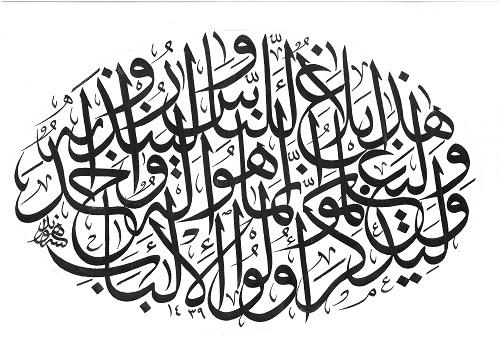 هذا بلاغ للناس ولينذروا به
وليعلموا أنما هو إله واحد
وليذكر أولوا الألباب
١٤٣٩